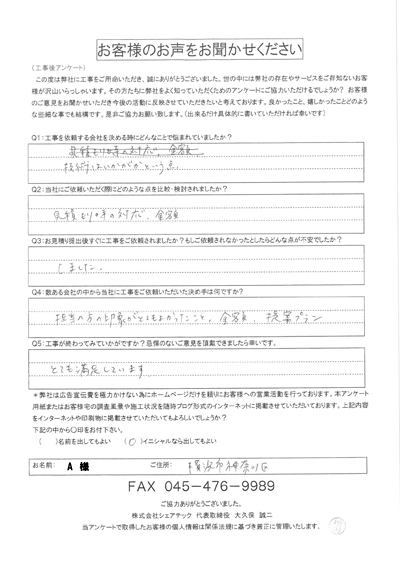 お客様のお声をお聞かせください
（工事後アンケート）
この度は弊社に工事をご用命いただき、誠にありがとうございました。世の中には弊社の存在やサービスをご存知ないお客
様が沢山いらっしゃいます。その方たちに弊社をよく知っていただくためのアンケートにご協力いただけるでしょうか？ お客様
のご意見をお聞かせいただき今後の活動に反映させていただきたいと考えております。良かったこと、嬉しかったことどのよう
な些細な事でも結構です。是非ご協力お願い致します。（出来るだけ具体的に書いていただければ幸いです）
Q1：工事を依頼する会社を決める時にどんなことで悩まれていましたか？
見積もり時の対応、金額
技術はいかがかという点
Q2：当社にご依頼いただく際にどのような点を比較・検討されましたか？
見積もり時の対応、金額
Q3：お見積り提出後すぐに工事をご依頼されましたか？もしご依頼されなかったとしたらどんな点が不安でしたか？
しました。
Q4：数ある会社の中から当社に工事をご依頼いただいた決め手は何ですか？
担当の方の印象がとてもよかったこと、金額、提案プラン
Q5：工事が終わってみていかがですか？忌憚のないご意見を頂戴できましたら幸いです。
とても満足しています
＊弊社は広告宣伝費を極力かけない為にホームページだけを頼りにお客様への営業活動を行っております。本アンケート
用紙またはお客様宅の調査風景や施工状況を随時ブログ形式のインターネットに掲載させていただいております。上記内容
をインターネットや印刷物に掲載させていただいてもよろしいでしょうか？
下記の中から〇印をお付下さい。
（ ）名前を出してもよい （〇）イニシャルなら出してもよい
お名前： A 様 ご住所： 横浜市神奈川区
FAX 045-476-9989
ご協力ありがとうございました。
株式会社シェアテック 代表取締役 大久保 誠二
当アンケートで取得したお客様の個人情報は関係法規に基づき厳正に管理いたします。